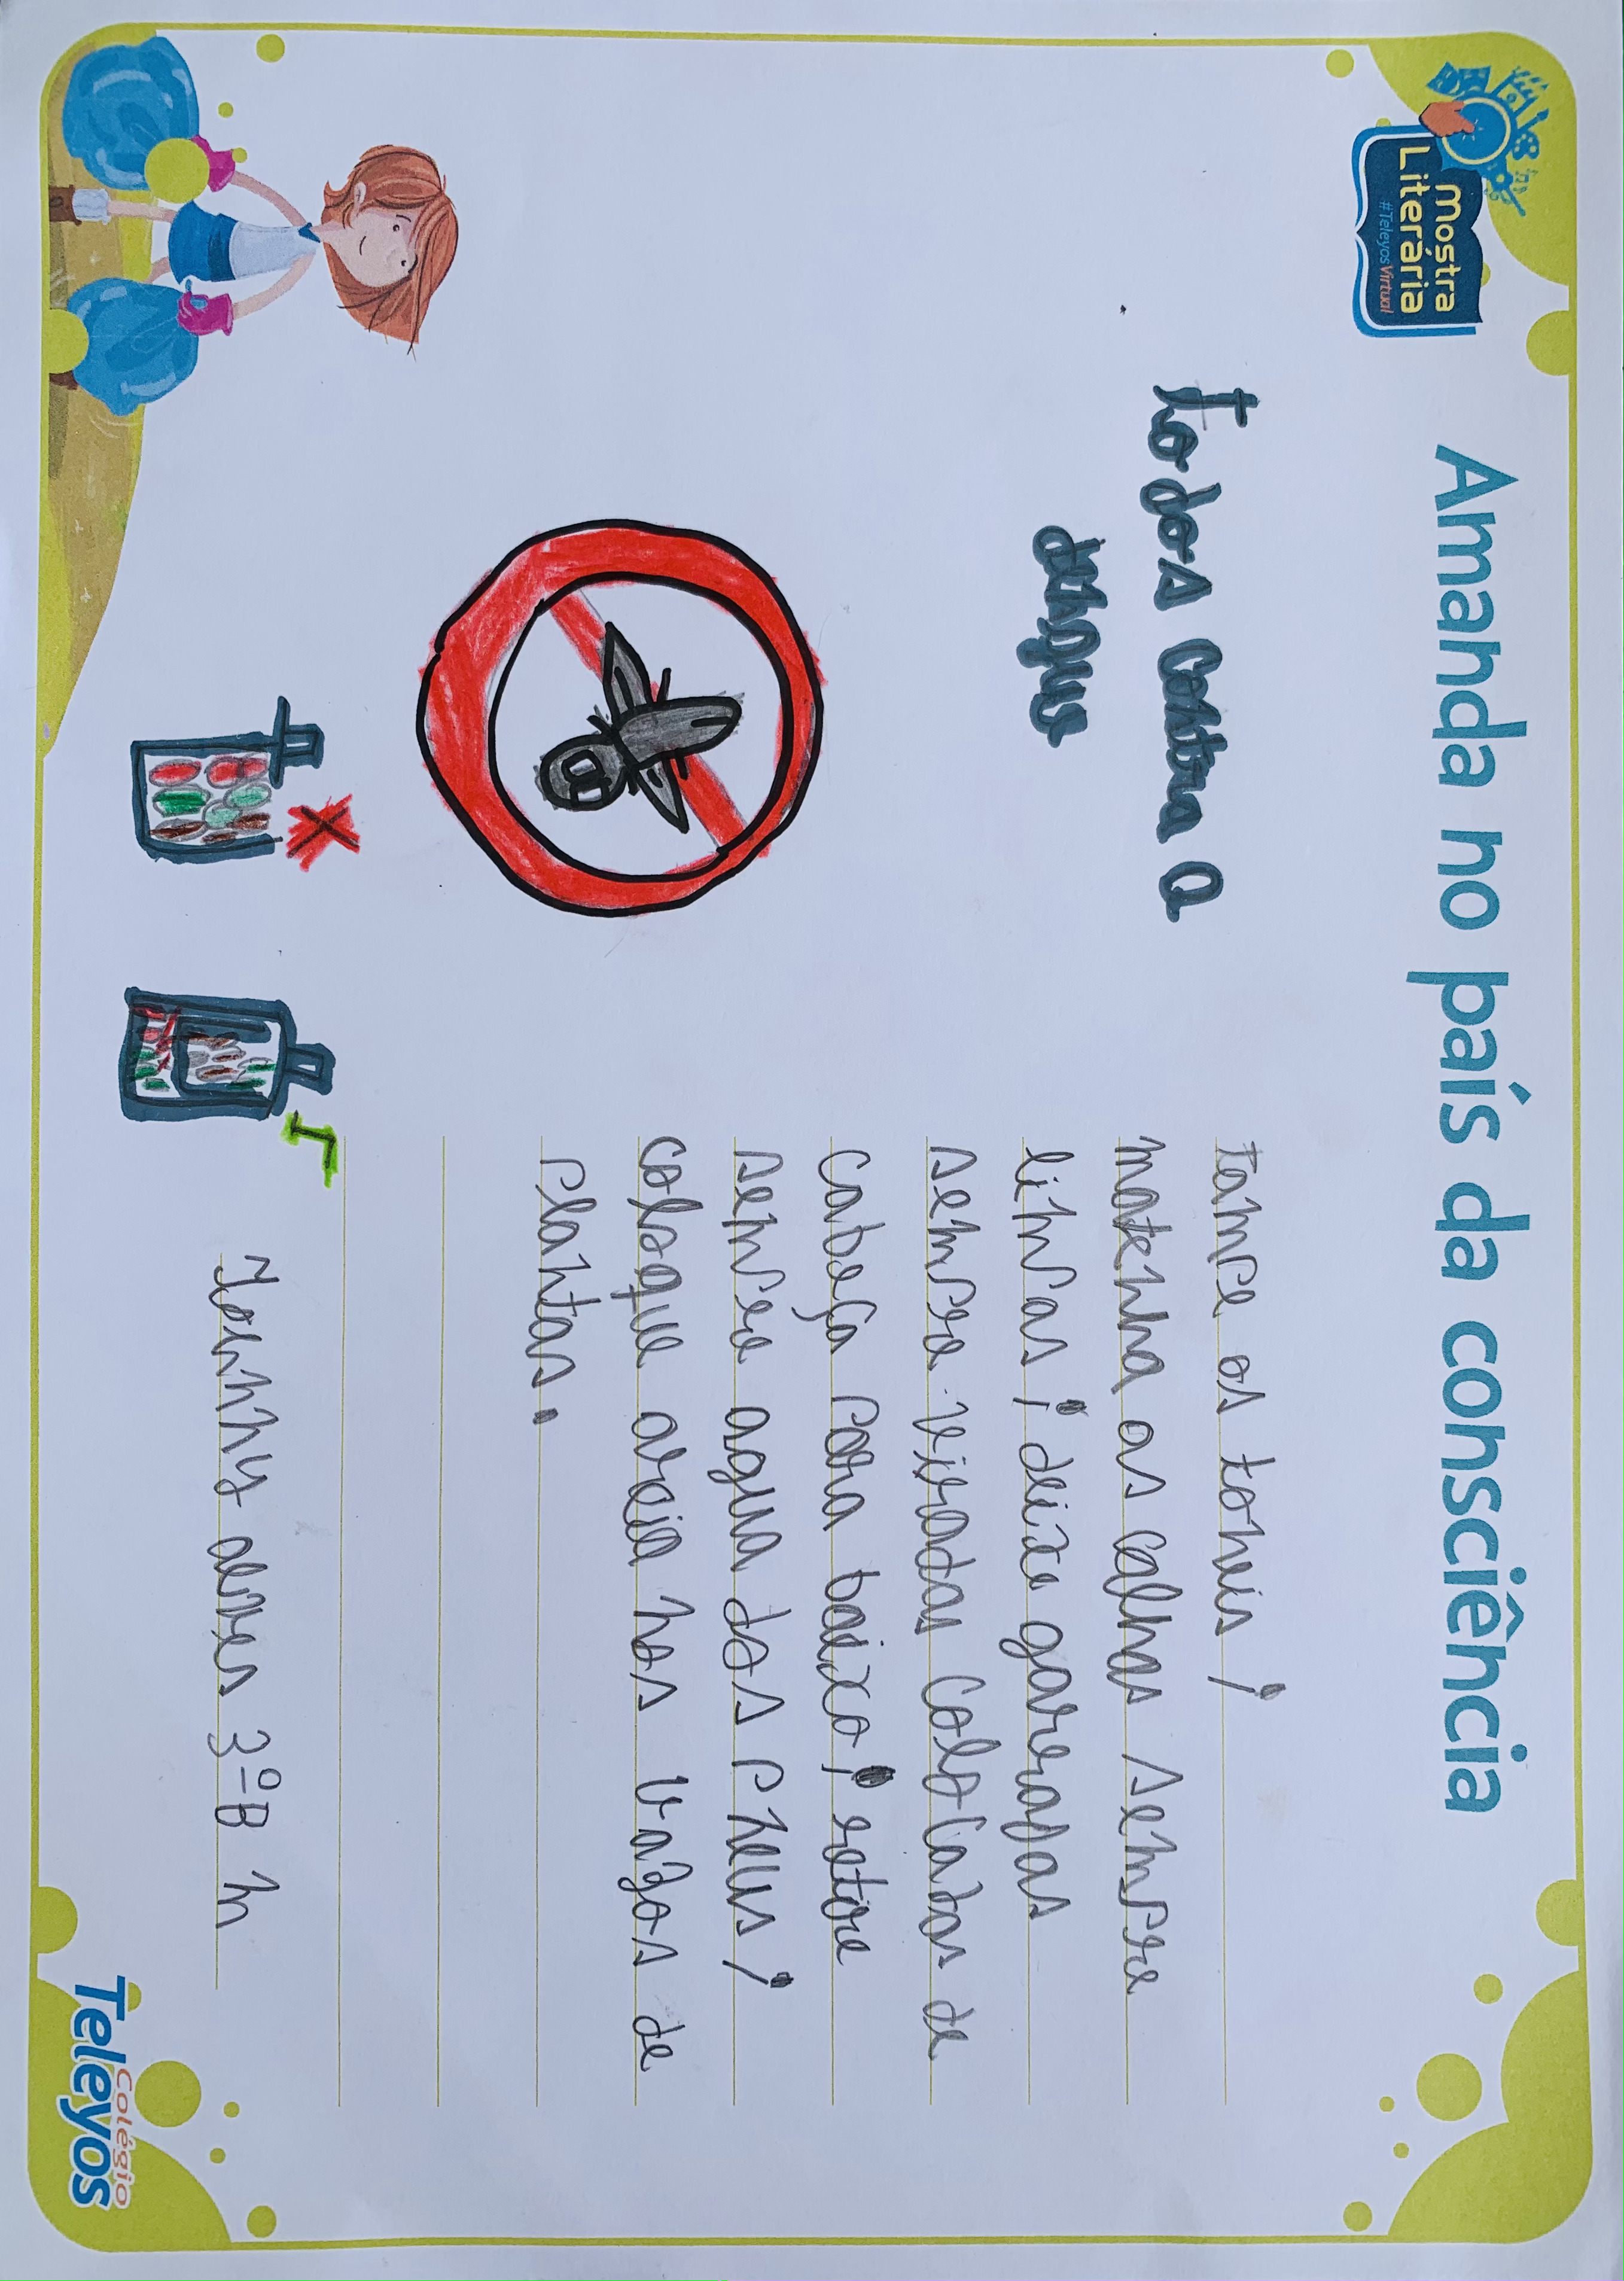 Mostra
Literária
#TeleyosVirtual
Amanda no país da consciência
Todos contra a
dengue
Tampe os toneis;
matenha as calhas sempre
limpas; deixe gararadas
sempre viradas colocadas de
cabeça para baixo; retire
sempre agua dos pneus;
coloque areia nos vazos de
plantas.
alves 3º B M
Colégio
Teleyos